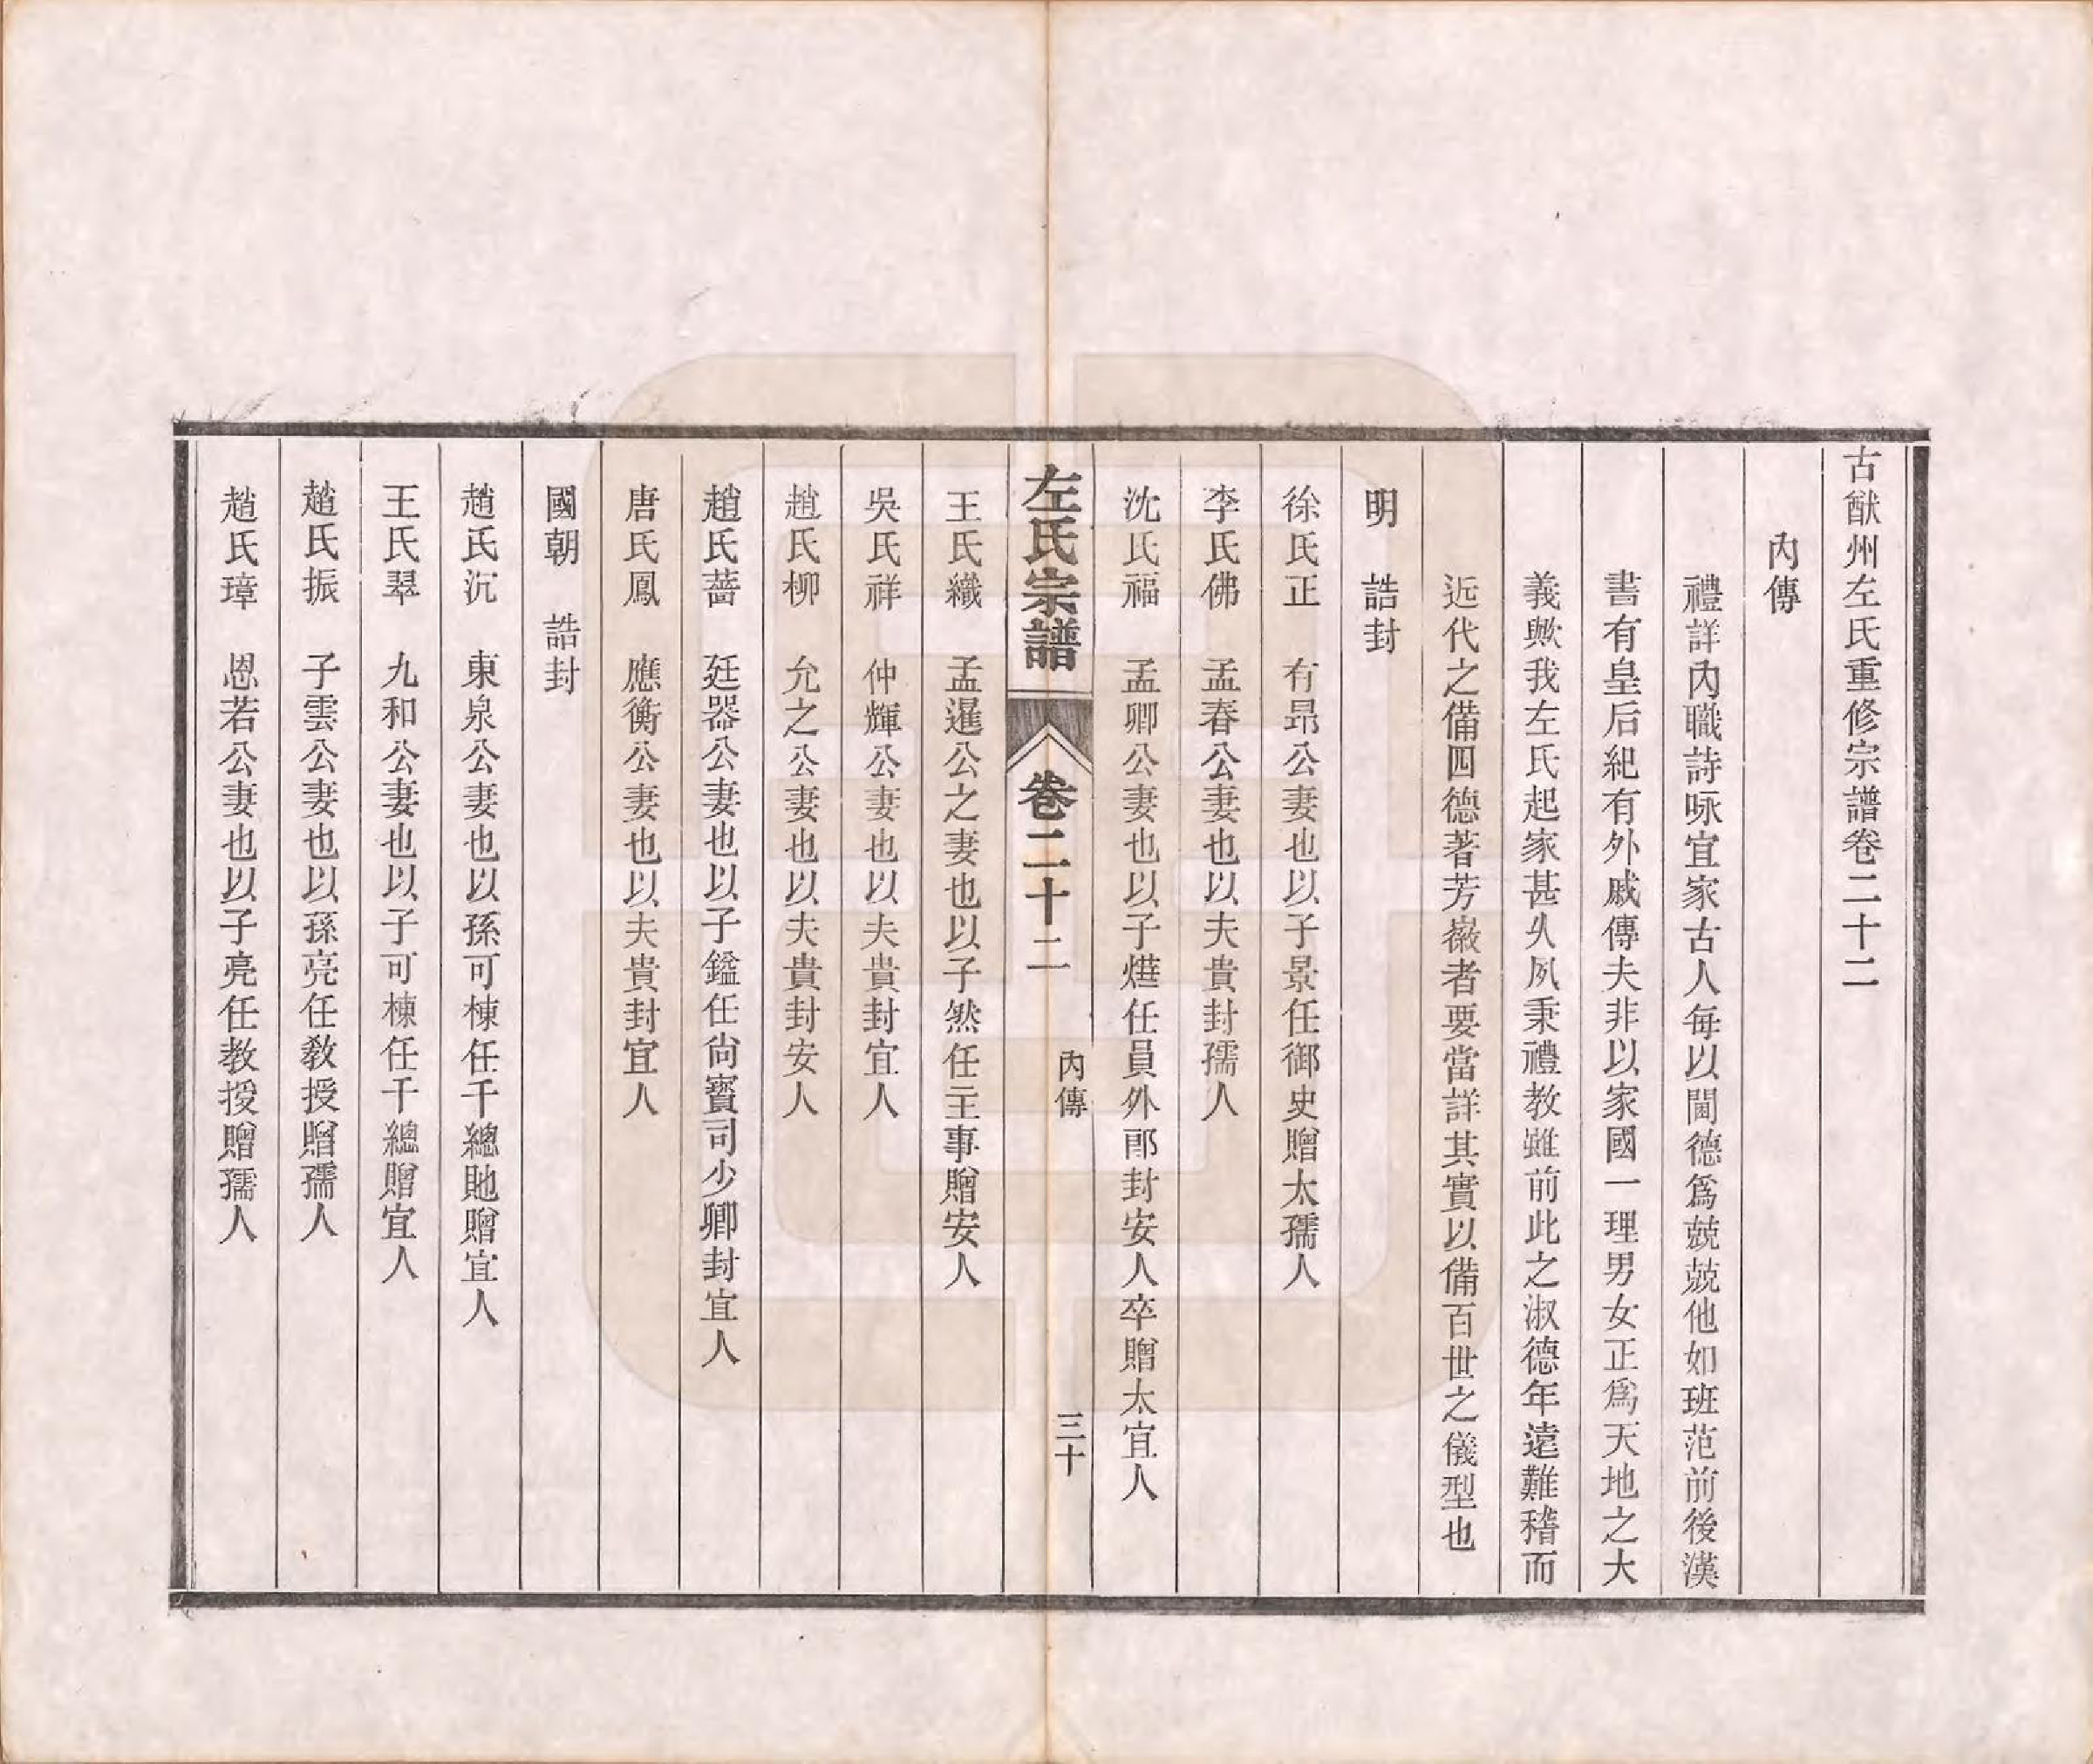 古猷州左氏重修宗譜卷二十二
內傳
禮詳內職詩咏宜家古人每以閫德爲兢兢他如班范前後漢
書有皇后紀有外戚傳夫非以家國一理男女正爲天地之大
義歟我左氏起家甚久夙秉禮教雖前此之淑德年遠難稽而
近代之備四德著芳徽者要當詳其實以備百世之儀型也
明 誥封
徐氏正 有昂公妻也以子景任御史贈太孺人
李氏佛 孟春公妻也以夫貴封孺人
沈氏福 孟卿公妻也以子燁任員外郎封安人卒贈太宜人
左氏宗譜 卷二十二 內傳 三十
王氏纖 孟暹公之妻也以子然任主事贈安人
吳氏祥 仲輝公妻也以夫貴封宜人
趙氏柳 允之公妻也以夫貴封安人
趙氏薔 廷器公妻也以子鎰任尚寶司少卿封宜人
唐氏鳳 應衡公妻也以夫貴封宜人
國朝 誥封
趙氏沉 東泉公妻也以孫可棟任千總貤贈宜人
王氏翠 九和公妻也以子可棟任千總贈宜人
趙氏振 子雲公妻也以孫亮任教授贈孺人
趙氏璋 恩若公妻也以子亮任教授贈孺人